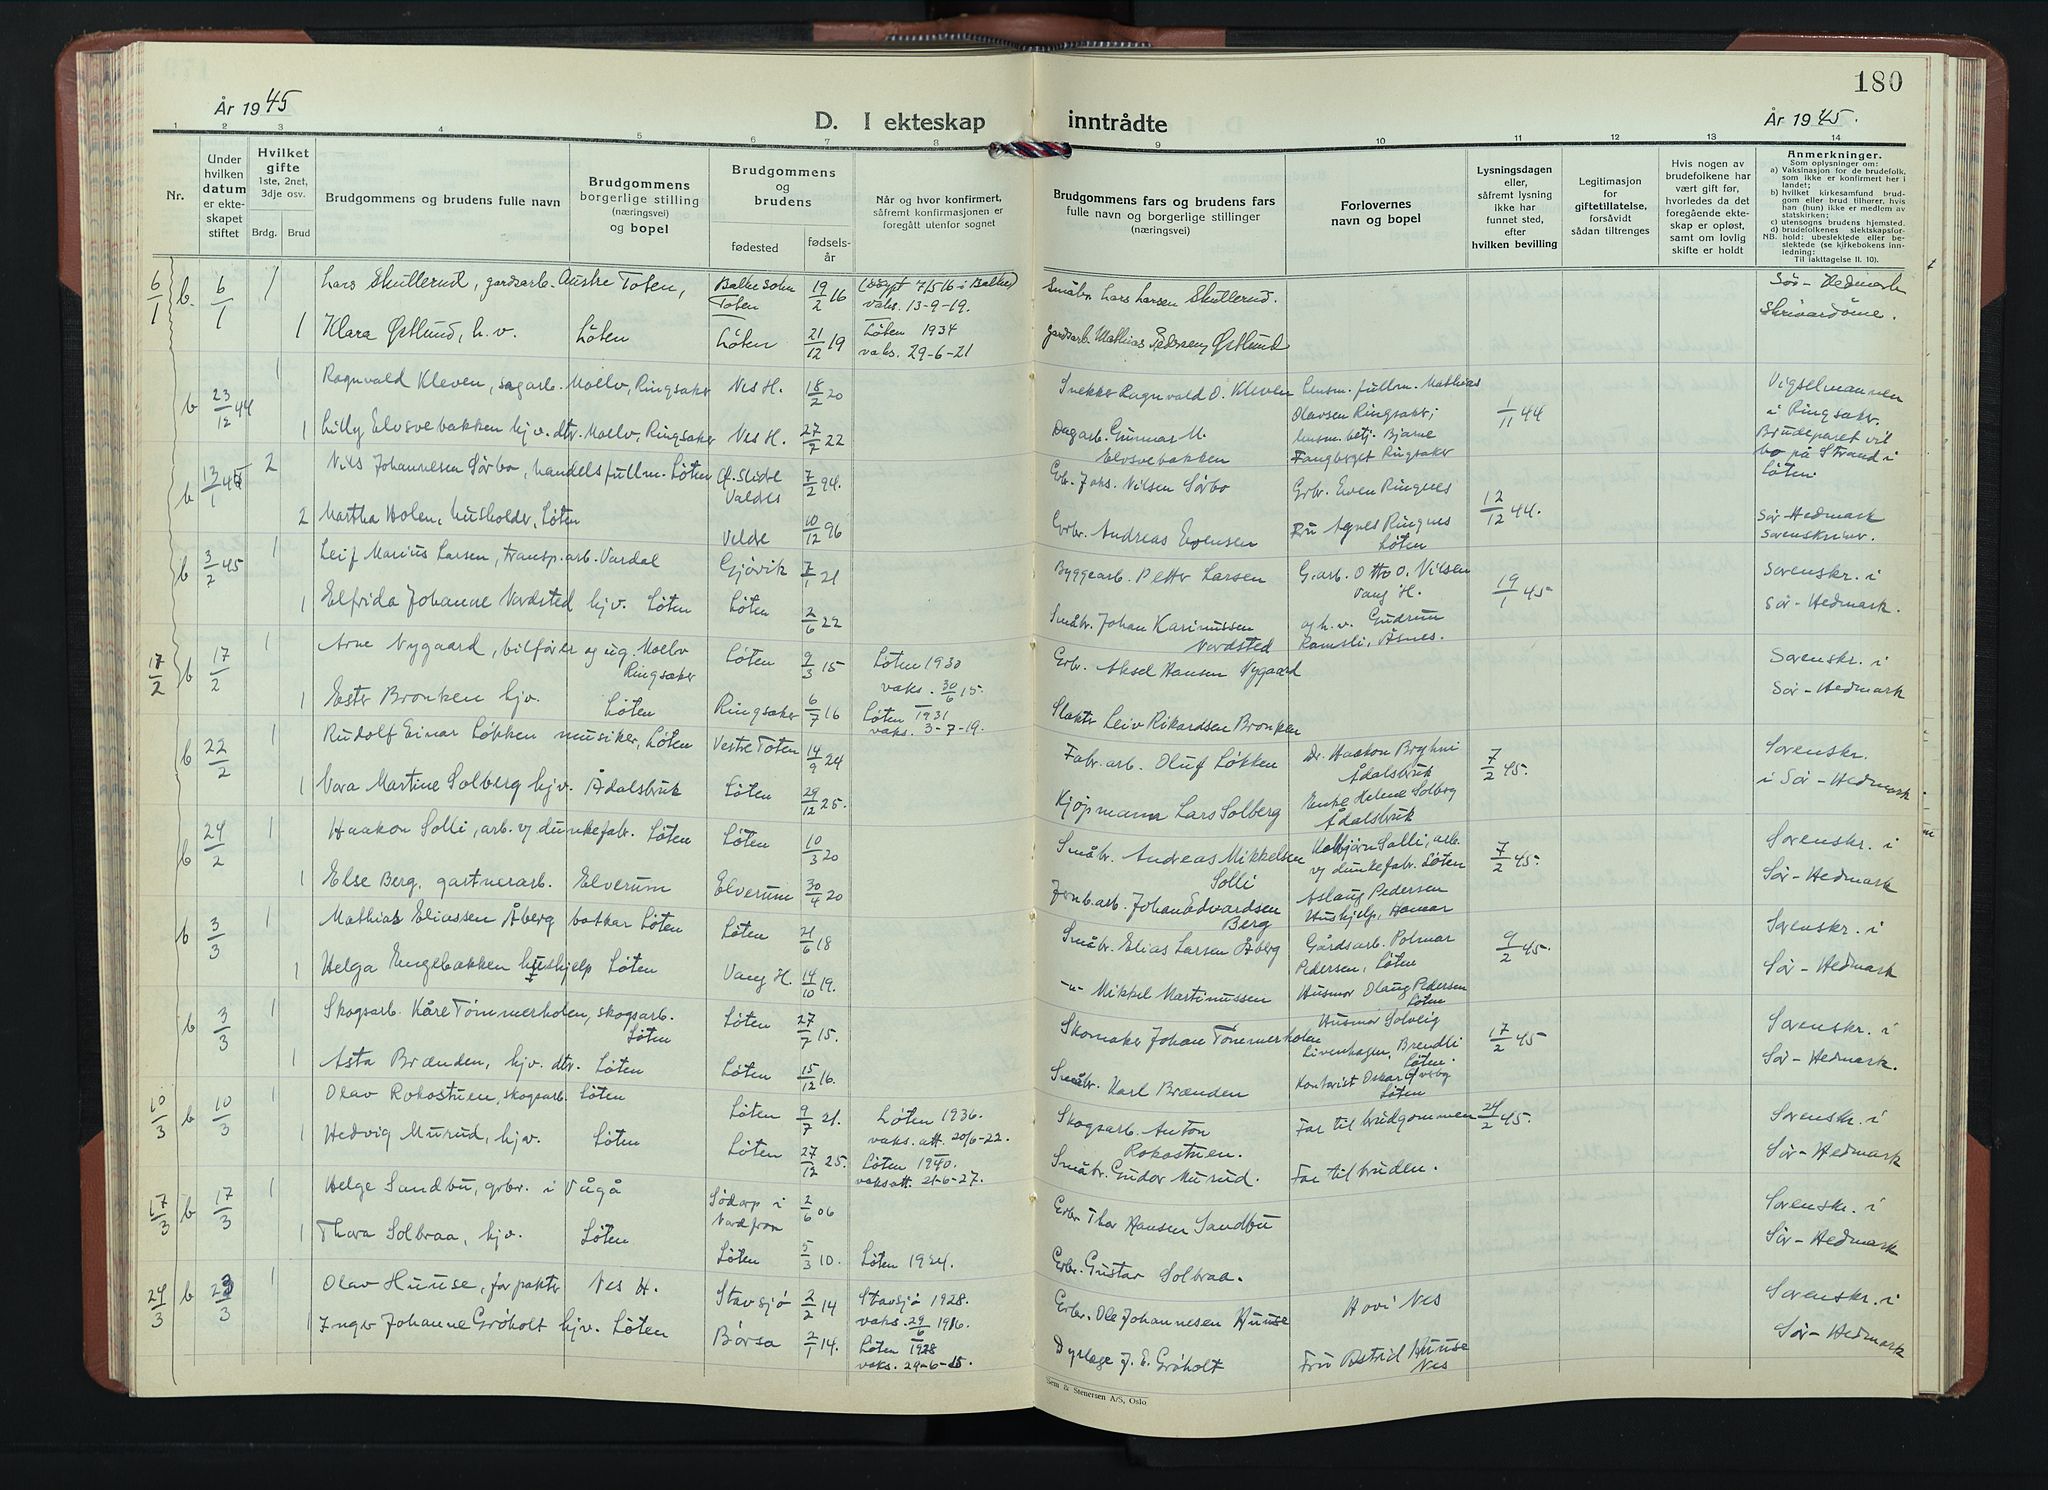 180
År 1945
D. I ekteskap inntrådte
År 1945.
1 2 3 4 5 6 7 8 9 10 11 12 13 14
Nr.
Under hvilken datum er ekteskapet stiftet
Hvilket gifte 1ste, 2net, 3dje osv.
Brdg. Brud
Brudgommens og brudens fulle navn
Brudgommens borgerlige stilling (næringsvei) og bopel
Brudgommens og brudens
fødested
fødselsår
Når og hvor konfirmert, såfremt konfirmasjonen er foregått utenfor sognet
Brudgommens fars og brudens fars fulle navn og borgerlige stillinger (næringsvei)
Forlovernes navn og bopel
Lysningsdagen eller, såfremt lysning ikke har funnet sted, efter hvilken bevilling
Legitimasjon for giftetillatelse, forsåvidt sådan tiltrenges
Hvis nogen av brudefolkene har vært gift før, hvorledes da det foregående ekteskap er opløst, samt om lovlig skifte er holdt
Anmerkninger.
Som oplysninger om:
a) Vaksinasjon for de brudefolk, som ikke er konfirmert her i landet;
b) hvilket kirkesamfund brudgom eller brud tilhører, hvis han (hun) ikke er medlem av statskirken;
c) utensogns brudens hjemsted.
d) brudefolkenes slektskapsforhold: ubeslektede eller beslektede (se kirkebokens innledning:
NB. Til iakttagelse II. 10).
6/1 b 6/1 1 Lars Skullerud, gardsarb. Austre Toten, Balke sokn Toten 19/2 16 (døpt 7/5 16 i Balke) vaks. 13-9-19. Småbr. Lars Larsen Skullerud. Sør-Hedmark
1 Klara Østlund, h.v. Løten Løten 21/12 19 Løten 1934 vaks. 29-6-21 gardsarb. Mathias Pedersen Østlund Skrivardøme.
b 23/12 44 1 Ragnvald Kleven, sagarb. Moelv, Ringsaker Nes H. 18/2 20 Snekker Ragnvald O. Kleven Lensm. fullm. Mathias Olavsen Ringsaker; 1/11 44 Vigselmannen i Ringsaker.
1 Lilly Elvsvebakken hjv. dtr. Moelv, Ringsaker Nes H. 27/7 22 Dagarb. Gunnar M. Elvsvebakken lensm. betj. Bjarne Fangberget Ringsaker Brudeparet vil bo på Strand i Løten.
b 13/1 45 2 Nils Johannesen Sørbo, handelsfullm. Løten Ø. Slidre Valdes 7/2 94. Grb. Johs. Nilsen Sørbo Grbr. Even Ringnes 12/12 44. Sør Hedmark
2 Martha Holen, husholder, Løten Veldre 10/12 96 Grbr. Andreas Evensen Fru Agnes Ringnes Løten Sorenskriver.
b 3/2 45 1 Leif Marius Larsen, transp. arb. Vardal Gjøvik 7/1 21 Byggearb. Petter Larsen G.arb. Otto O. Nilsen Vang H. 19/1 45 Sorenskr. i
1 Elfrida Johanne Nordsted hjv. Løten Løten 2/6 22 Småbr. Johan Karinussen Nordsted og h.v. Gudrun Ramsli, Åsnes. Sør-Hedmark.
17/2 b 17/2 1 Arne Nygaard, bilfører og ug. Moelv Ringsaker Løten 9/3 15 Løten 1930 vaks. 30/6 15. Grbr. Aksel Hansen Nygaard Sorenskr. i
1 Ester Bronken hjv. Løten Ringsaker 6/7 16 Løten 1931 vaks. 3-7-19. Slakter Leiv Rikardsen Bronken Sør-Hedmark
b 22/2 1 Rudolf Einar Løkken musiker, Løten Vestre Toten 14/9 24 Fabr. arb. Oluf Løkken Dr. Haakon Bryhni Ådalsbruk 7/2 45. Sorenskr.
1 Vera Martine Solberg hjv. Ådalsbruk Løten 29/12 25. Kjøpmann Lars Solberg Enke Helene Solberg Ådalsbruk i Sør-Hedmark
b 24/2 1 Haakon Solli, arb. v/ dunkefabr. Løten Løten 10/3 20 Småbr. Andreas Mikkelsen Solli Kolbjørn Solli, arb. v/ dunkefabr. Løten 7/2 45. Sorenskr. i
1 Else Berg, gartnerarb. Elverum Elverum 30/4 20 Jernb.arb. Johan Edvardsen Berg Aslaug Pedersen Hushjelp, Hamar Sør-Hedmark
b 3/3 1 Mathias Eliassen Åberg bøtkar Løten Løten 21/6 18 Småbr. Elias Larsen Åberg Gårdsarb. Polmar Pedersen, Løten 9/2 45. Sorenskr. i
1 Helga Engebakken hushjelp Løten Vang H. 14/10 19. -"- Mikkel Martinussen Husmor Olaug Pedersen Løten Sør-Hedmark
b 3/3 1 Skogsarb. Kåre Tømmerholen, skogsarb. Løten Løten 27/7 15. Skomaker Johan Tømmerholen Husmor Solveig Livenhagen, Brendli Løten. 17/2 45 Sorenskr. i
1 Asta Brænden, hjv. dtr. Løten Løten 15/12 16. Småbr. Karl Brænden Kontorist Oskar Løten Sør-Hedmark.
10/3 b 10/3 1 Olav Rokostuen, skogsarb. Løten Løten 9/7 21. Løten 1936. vaks. att. 20/6-22. Skogsarb. Anton Rokostuen. Far til brudgommen 24/2 45. Sorenskr. i
1 Hedvig Murud, hjv. Løten Løten 27/12 25. Løten 1940. vaks att. 21-6-27. Småbr. Gudor Murud. Far til bruden. Sør-Hedmark
17/3 b 17/3 1 Helge Sandbu, grbr. i Vågå Sødorp i Nordfron 2/6 06 Grbr. Thor Hansen Sandbu Sorenskr. i
1 Thora Solbraa, hjv. Løten Løten 5/3 10. Løten 1924. Grbr. Gustav Solbraa. Sør-Hedmark
24/3 b 23/3 1 Olav Huuse, forpakter Nes H. Stavsjø 2/2 14 Stavsjø 1928. vaks. 29/6 1916. Grbr. Ole Johannesen Huuse Hovi Nes Sorenskr. i
1 Inger Johanne Grøholt hjv. Løten Børsa 2/1 14. Løten 1928 vaks. 29-6-15. Dyrlege J. E. Grøholt Fru Astrid Huuse Nes Sør-Hedmark
Sem & Stenersen A/S, Oslo